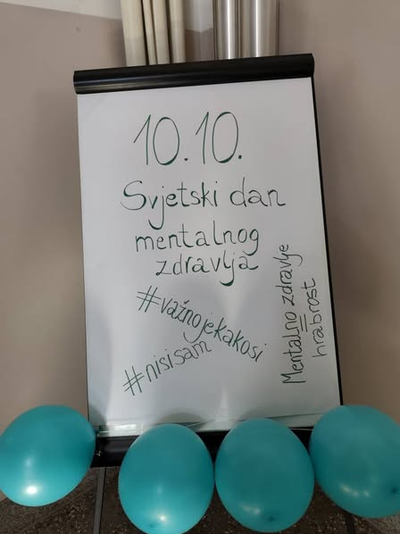 10.10.
Svjetski dan
mentalnog
zdravlja
#važnojekakosi
#nisisam
Mentalno zdravlje
=
hrabrost